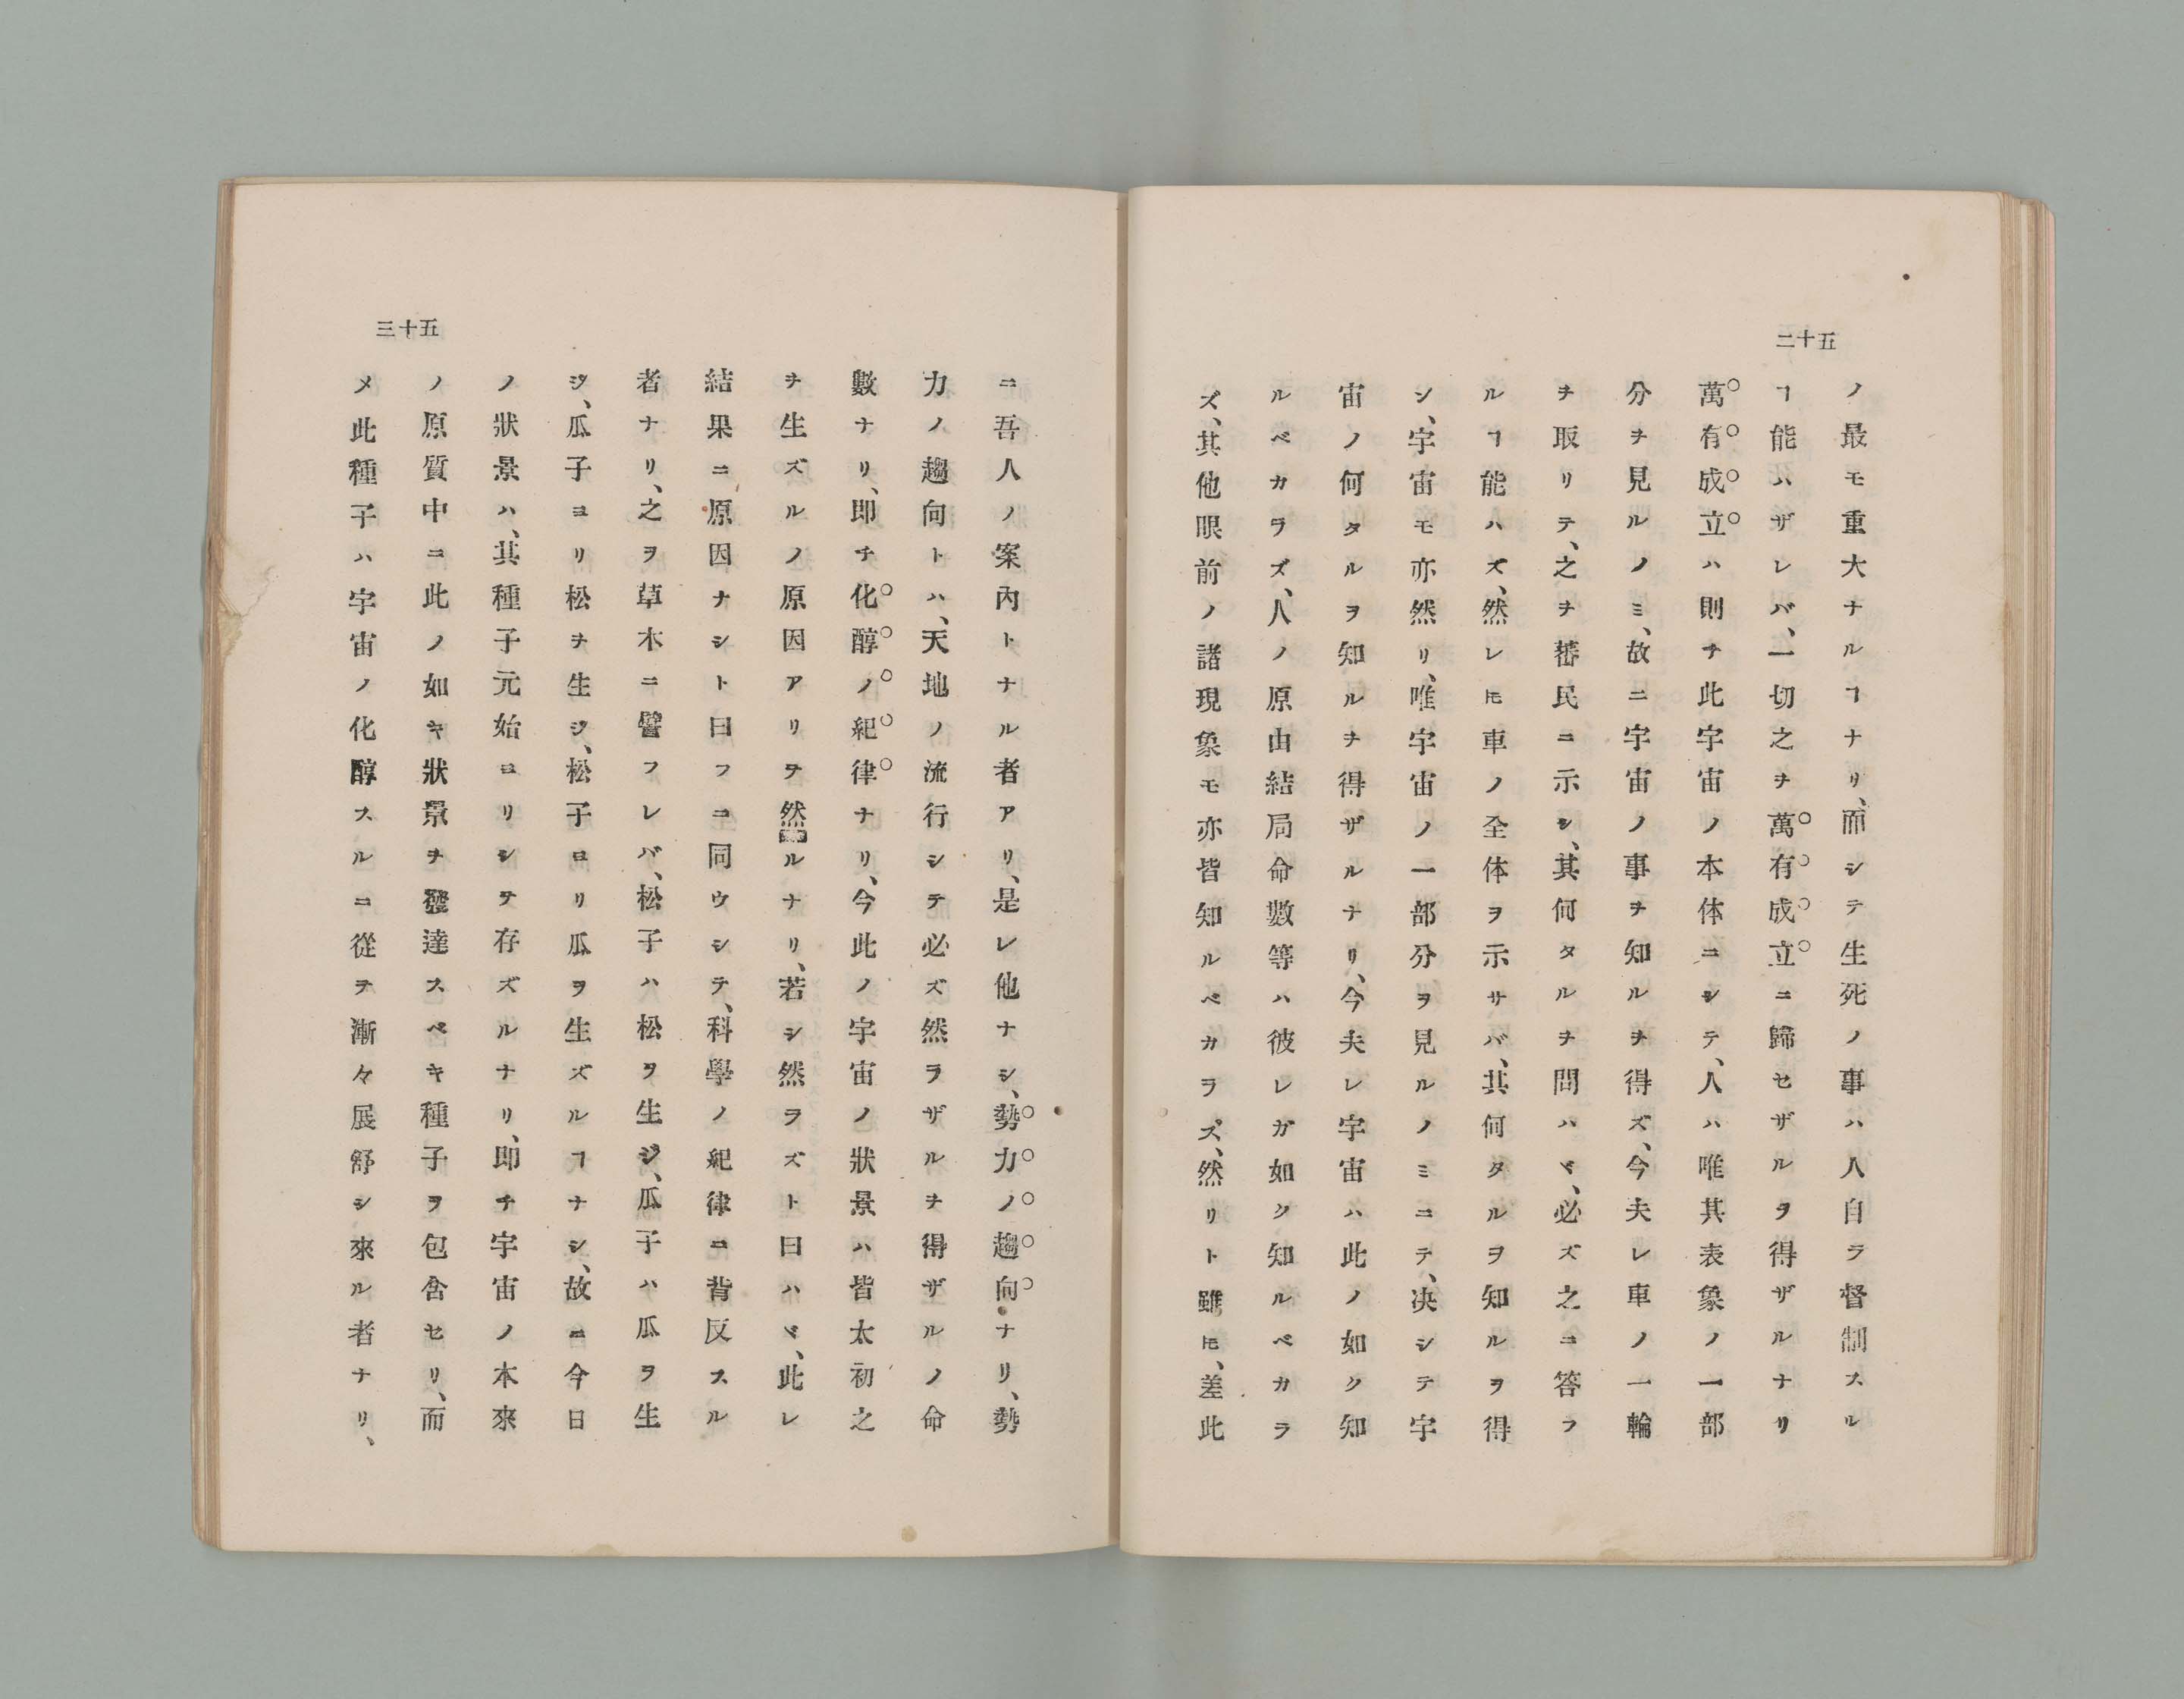 五十二
ノ最モ重大ナルヿナリ、而シテ生死ノ事ハ人自ラ督制スル
ヿ能ハザレバ、一切之ヲ萬有成立ニ歸セザルヲ得ザルナリ
萬有成立ハ則チ此宇宙ノ本体ニシテ、人ハ唯其表象ノ一部
分ヲ見ルノミ、故ニ宇宙ノ事ヲ知ルヲ得ズ、今夫レ車ノ一輪
ヲ取リテ、之ヲ蕃民ニ示シ、其何タルヲ問ハヾ、必ズ之ニ答フ
ルヿ能ハズ、然レ𪜈車ノ全体ヲ示サバ、其何タルヲ知ルヲ得
シ、宇宙モ亦然リ、唯宇宙ノ一部分ヲ見ルノミニテ、决シテ宇
宙ノ何タルヲ知ルヲ得ザルナリ、今夫レ宇宙ハ此ノ如ク知
ルベカラズ、人ノ原由結局命數等ハ彼レガ如ク知ルベカラ
ズ、其他眼前ノ諸現象モ亦皆知ルベカラズ、然リト雖𪜈、差此
五十三
ニ吾人ノ案內トナル者アリ、是レ他ナシ、勢力ノ趨向ナリ、勢
力ノ趨向トハ、天地ノ流行シテ必ズ然ラザルヲ得ザルノ命
數ナリ、即チ化醇ノ紀律ナリ、今此ノ宇宙ノ狀景ハ皆太初之
ヲ生ズルノ原因アリテ然ルナリ、若シ然ラズト曰ハヾ、此レ
結果ニ原因ナシト曰フニ同ウシテ、科學ノ紀律ニ背反スル
者ナリ、之ヲ草木ニ譬フレバ、松子ハ松ヲ生ジ、瓜子ハ瓜ヲ生
ジ、瓜子ヨリ松ヲ生ジ、松子ヨリ瓜ヲ生ズルヿナシ、故ニ今日
ノ狀景ハ、其種子元始ヨリシテ存ズルナリ、即チ宇宙ノ本來
ノ原質中ニ此ノ如キ狀景ヲ發達スベキ種子ヲ包含セリ、而
メ此種子ハ宇宙ノ化醇スルニ從ヲ漸々展舒シ來ル者ナリ、